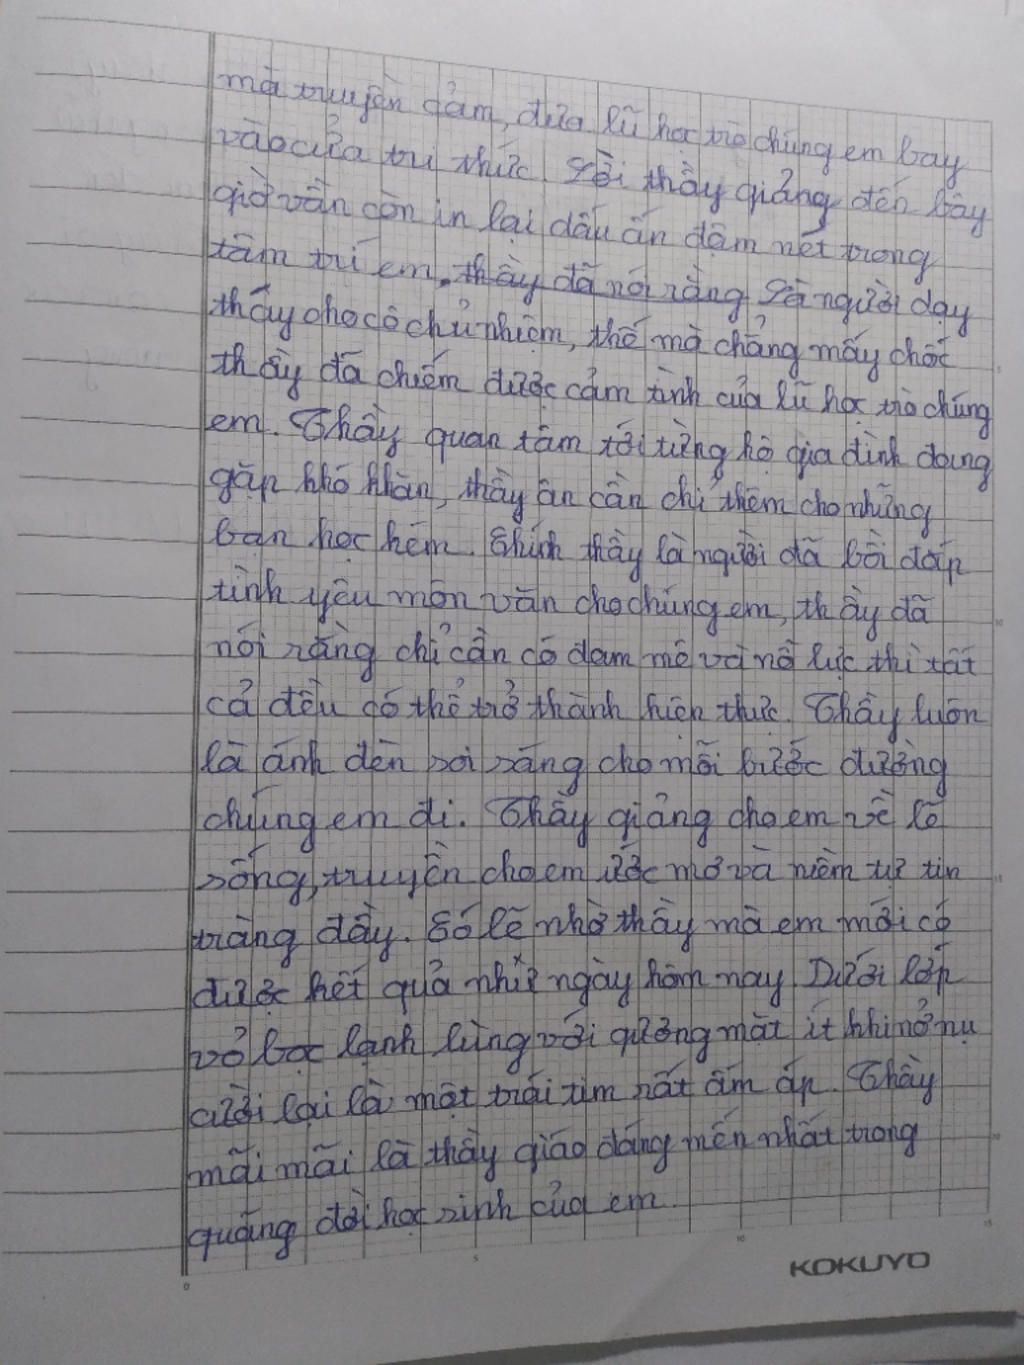 mà truyền cảm, đưa lũ học trò chúng em bay
vào cửa tri thức. Lời thầy giảng đến bây
giờ vẫn còn in lại dấu ấn đậm nét trong
tâm trí em. thầy đã nói rằng là người dạy
thấy cho cô chủ nhiệm, thế mà chẳng mấy chốc
thầy đã chiếm được cảm tình của lũ học trò chúng
em. Thầy quan tâm tới từng hộ gia đình đang
gặp khó khăn, thầy ân cần chỉ thêm cho những
bạn học kém. Chính thầy là người đã bồi đắp
tình yêu môn văn cho chúng em, thầy đã
nói rằng chỉ cần có đam mê và nỗ lực thì tất
cả đều có thể trở thành hiện thực. Thầy luôn
là ánh đèn soi sáng cho mỗi bước đường
chúng em đi. Thầy giảng cho em về lẽ
sống, truyền cho em ước mơ và niềm tự tin
tràng đầy. Có lẽ nhờ thầy mà em mới có
được kết quả như ngày hôm nay. Dưới lớp
vỏ bọc lạnh lùng với gương mặt ít khi nở nụ
cười lại là một trái tim rất ấm áp. Thầy
mãi mãi là thầy giáo đáng mến nhất trong
quãng đời học sinh của em.
KOKUYO